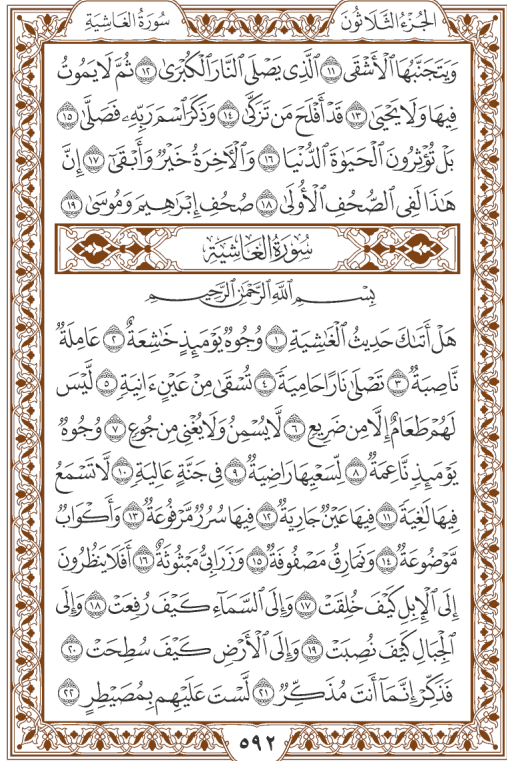 سُورَةُ الغَاشِيَةِ
الجُزْءُ الثَّلَاثُونَ
وَيَتَجَنَّبُهَا ٱلْأَشْقَى ١١ ٱلَّذِي يَصْلَى ٱلنَّارَ ٱلْكُبْرَىٰ ١٢ ثُمَّ لَا يَمُوتُ
فِيهَا وَلَا يَحْيَىٰ ١٣ قَدْ أَفْلَحَ مَن تَزَكَّىٰ ١٤ وَذَكَرَ ٱسْمَ رَبِّهِۦ فَصَلَّىٰ ١٥
بَلْ تُؤْثِرُونَ ٱلْحَيَوٰةَ ٱلدُّنْيَا ١٦ وَٱلْأَخِرَةُ خَيْرٌ وَأَبْقَىٰٓ ١٧ إِنَّ
هَٰذَا لَفِي ٱلصُّحُفِ ٱلْأُولَىٰ ١٨ صُحُفِ إِبْرَٰهِيمَ وَمُوسَىٰ ١٩
سُورَةُ الغَاشِيَةِ
بِسْمِ ٱللَّهِ ٱلرَّحْمَٰنِ ٱلرَّحِيمِ
هَلْ أَتَىٰكَ حَدِيثُ ٱلْغَٰشِيَةِ ١ وُجُوهٌ يَوْمَئِذٍ خَٰشِعَةٌ ٢ عَامِلَةٌ
نَّاصِبَةٌ ٣ تَصْلَىٰ نَارًا حَامِيَةً ٤ تُسْقَىٰ مِنْ عَيْنٍ ءَانِيَةٍ ٥ لَّيْسَ
لَهُمْ طَعَامٌ إِلَّا مِن ضَرِيعٍ ٦ لَّا يُسْمِنُ وَلَا يُغْنِي مِن جُوعٍ ٧ وُجُوهٌ
يَوْمَئِذٍ نَّاعِمَةٌ ٨ لِّسَعْيِهَا رَاضِيَةٌ ٩ فِي جَنَّةٍ عَالِيَةٍ ١٠ لَّا تَسْمَعُ
فِيهَا لَٰغِيَةً ١١ فِيهَا عَيْنٌ جَارِيَةٌ ١٢ فِيهَا سُرُرٌ مَّرْفُوعَةٌ ١٣ وَأَكْوَابٌ
مَّوْضُوعَةٌ ١٤ وَنَمَارِقُ مَصْفُوفَةٌ ١٥ وَزَرَابِيُّ مَبْثُوثَةٌ ١٦ أَفَلَا يَنظُرُونَ
إِلَى ٱلْإِبِلِ كَيْفَ خُلِقَتْ ١٧ وَإِلَى ٱلسَّمَآءِ كَيْفَ رُفِعَتْ ١٨ وَإِلَى
ٱلْجِبَالِ كَيْفَ نُصِبَتْ ١٩ وَإِلَى ٱلْأَرْضِ كَيْفَ سُطِحَتْ ٢٠
فَذَكِّرْ إِنَّمَآ أَنتَ مُذَكِّرٌ ٢١ لَّسْتَ عَلَيْهِم بِمُصَيْطِرٍ ٢٢
٥٩٢